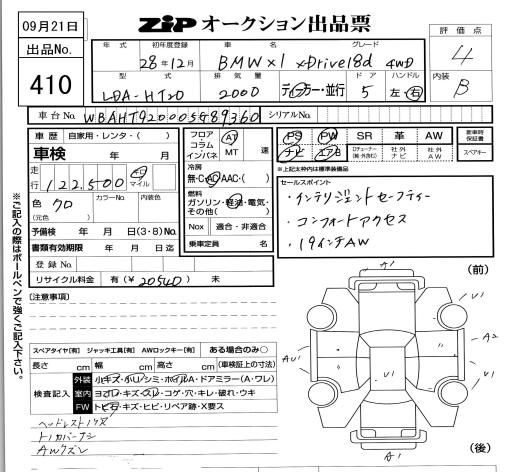 09月21日
ZIP オークション出品票
評価点
4
出品No.
410
年式 初年度登録 車名 グレード
28年12月 BMW X1 xDrive18d 4WD
内装
B
型式 排気量 ドア ハンドル
LDA-HT20 2000 ディーラー・並行 5 左・右
車台No. WBAHT920005G89360 シリアルNo.
車歴 自家用・レンタ・( )
車検 年 月
走行 122,500 キロ マイル
色 クロ カラーNo. 内装色
(元色)
予備検 年 月 日(3・8)No.
書類有効期限 年 月 日迄
登録No.
リサイクル料金 有(¥20540) 未
フロア コラム インパネ AT MT 速
冷房
無・C・AC・AAC・( )
燃料
ガソリン・軽油・電気・その他( )
Nox 適合・非適合
乗車定員 名
PS PW SR 革 AW 新車時保証書
ナビ エアB ロデューナー(純・外含む) 社外ナビ 社外AW スペアキー
※上記太枠内は標準装備品
セールスポイント
・インテリジェントセーフティー
・コンフォートアクセス
・19インチAW
※ご記入の際はボールペンで強くご記入下さい。
[注意事項]
スペアタイヤ[有] ジャッキ工具[有] AWロックキー[有] ある場合のみ○
長さ cm 幅 cm 高さ cm (車検証上の寸法)
検査記入
外装 小キズ・小凹・シミ・ホイルA・ドアミラー(A・ワレ)
室内 ヨゴレ・キズ・スレ・コゲ・穴・キレ・破れ・ウキ
FW トビ石・キズ・ヒビ・リペア跡・X要ス
ヘッドレスト
トノカバーナシ
AWクズレ
(前)
A1
U1
A2
AU1
U1
U1
A1
(後)